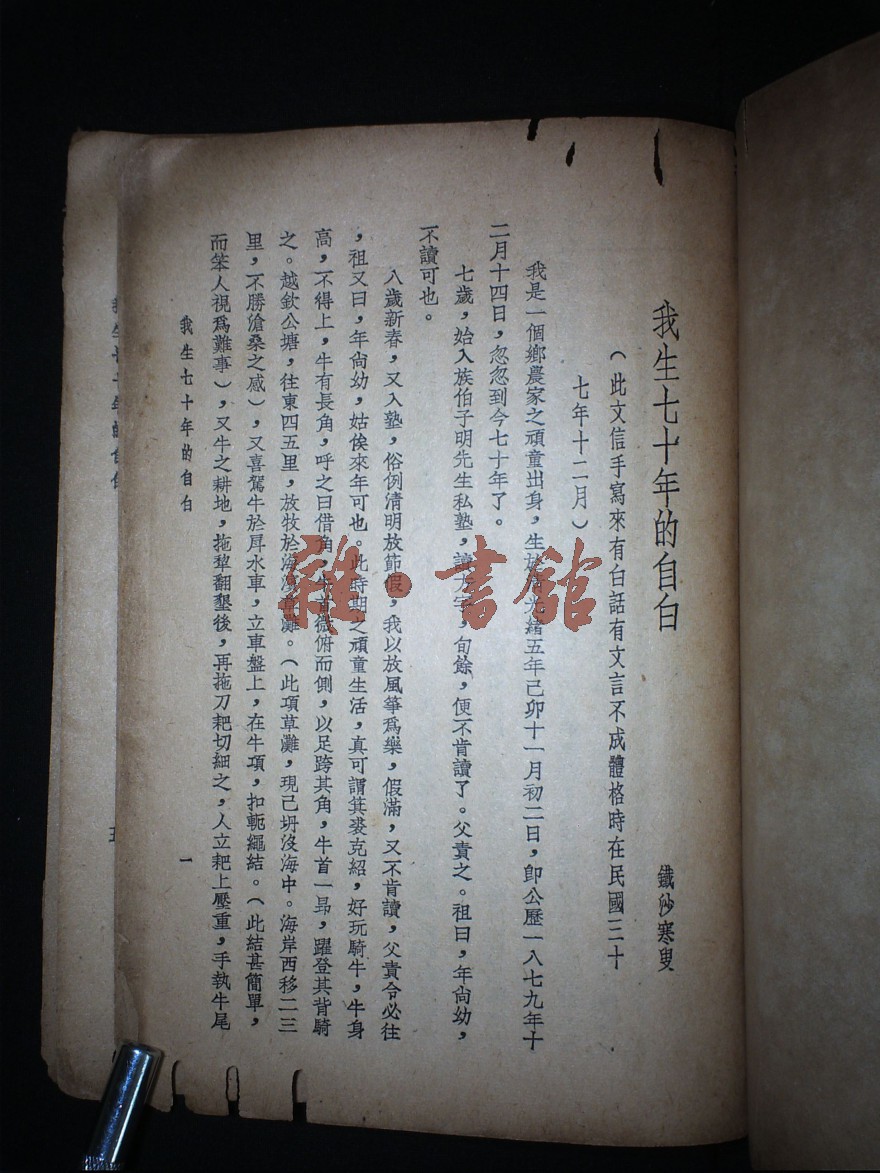 我生七十年的自白
鐵沙寒叟
（此文信手寫來有白話有文言不成體格時在民國三十
七年十二月）
我是一個鄉農家之頑童出身，生於清光緒五年己卯十一月初二日，卽公歷一八七九年十
二月十四日，忽忽到今七十年了。
七歲，始入族伯子明先生私塾，讀方字，旬餘，便不肯讀了。父責之。祖曰，年尙幼，
不讀可也。
八歲新春，又入塾，俗例清明放節假，我以放風箏爲樂，假滿，又不肯讀，父責令必往
，祖又曰，年尙幼，姑俟來年可也。此時期之頑童生活，真可謂箕裘克紹，好玩騎牛，牛身
高，不得上，牛有長角，呼之曰借角，牛首微俯而側，以足跨其角，牛首一昂，躍登其背騎
之。越欽公塘，往東四五里，放牧於海濱草灘。（此項草灘，現已坍沒海中。海岸西移二三
里，不勝滄桑之感），又喜駕牛於戽水車，立車盤上，在牛項，扣軛繩結。（此結甚簡單，
而笨人視爲難事），又牛之耕地，拖犂翻墾後，再拖刀耙切細之，人立耙上壓重，手執牛尾
我生七十年的自白
一
我生七十年的自白
雜·書館